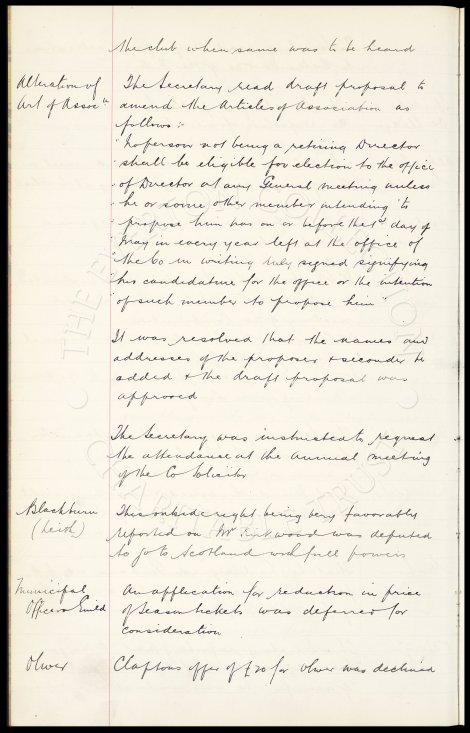 the club when same was to be heard
Alteration of
Art of Assocn
The Secretary read draft proposal to
amend the Articles of Association as
follows:-
"No person not being a retiring Director
"shall be eligible for election to the office
"of Director at any General meeting unless
"he or some other member intending to
"propose him has on or before the 1st day of
"May in every year left at the office of
"the Co in writing duly signed signifying
"his candidature for the office or the intention
"of such member to propose him"
It was resolved that the names and
addresses of the proposer & seconder be
added & the draft proposal was
approved
The Secretary was instructed to request
the attendance at the annual meeting
of the Co Solicitor
Blackburn
(Leith)
This outside right being very favorably
reported on Mr Kirkwood was deputed
to go to Scotland with full powers
Municipal
Officers Guild
An application for reduction in price
of Season tickets was deferred for
consideration
Oliver
Claptons offer of £20 for Oliver was declined